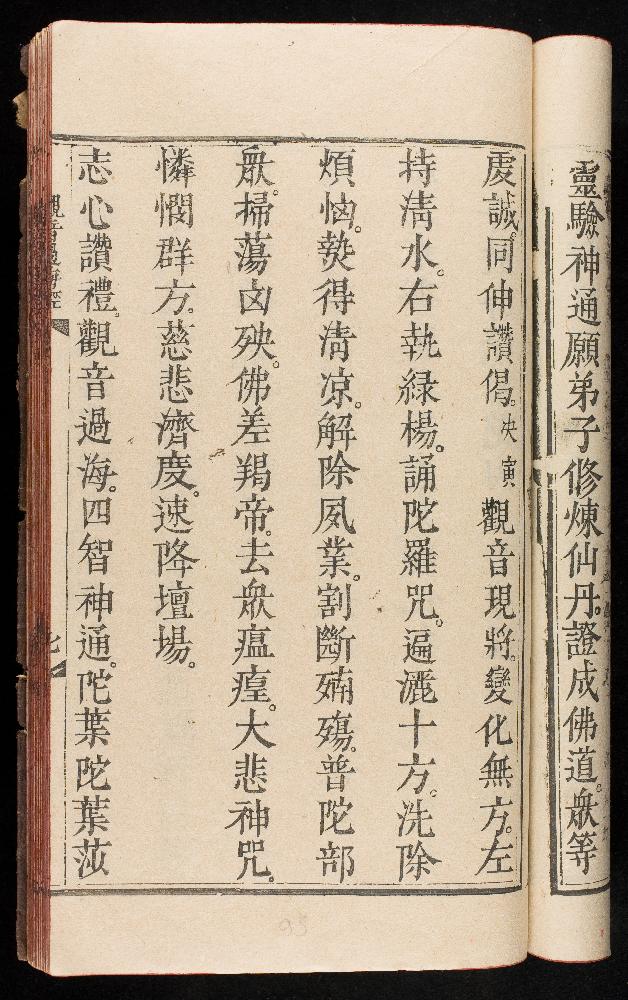 靈驗神通願弟子修煉仙丹。證成佛道。衆等
虔誠。同伸讚偈。央寅 觀音現將。變化無方。左
持淸水。右執緑楊。誦陀羅咒。遍灑十方。洗除
煩惱。𤍠得淸凉。解除夙業。割斷。普陀部
衆。掃蕩凶殃。佛差羯帝。去衆瘟㾮。大悲神咒。
憐憫群方。慈悲濟度。速降壇場。
志心讚禮。觀音過海。四智神通。陀葉陀葉莎
觀音
七
95